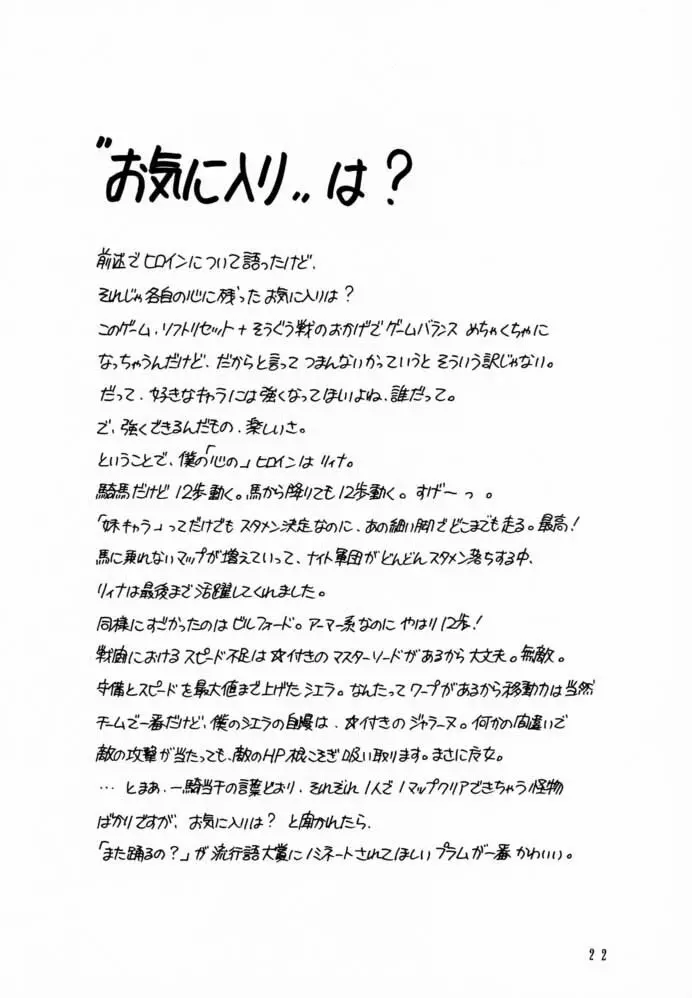 "お気に入り"は?
前述でヒロインについて語ったけど、
それじゃ各自の心に残ったお気に入りは?
このゲーム、ソフトリセット+そうぐう戦のおかげでゲームバランス めちゃくちゃに
なっちゃうんだけど、だからと言って つまんないかっていうと そういう訳じゃない。
だって、好きなキャラには強くなってほしいよね、誰だって。
で、強くできるんだもの、楽しいさ。
ということで、僕の「心の」ヒロインは リィナ。
騎馬だけど 12歩動く。馬から降りても12歩動く。すげーっ。
「妹キャラ」ってだけでも スタメン決定なのに、あの細い脚でどこまでも走る。最高!
馬に乗れないマップが増えていって、ナイト軍団がどんどんスタメン落ちする中、
リィナは最後まで活躍してくれました。
同様にすごかったのは ビルフォード。アーマー系なのに やはり12歩!
戦闘における スピード不足は☆付きの マスターソードがあるから大丈夫。無敵。
守備とスピードを最大値まで上げた シエラ。なんたって ワープがあるから移動力は当然
チームで一番だけど、僕のシエラの自慢は、☆付きの ジャヌーラ。何かの間違いで
敵の攻撃が当たっても、敵のHP根こそぎ吸い取ります。まさに魔女。
…とまあ、一騎当千の言葉どおり、それぞれ 1人で 1マップクリアできちゃう怪物
ばかりですが、お気に入りは? と聞かれたら、
「また踊るの?」が 流行語大賞に ノミネートされてほしい プラムが一番 かわいい。
22